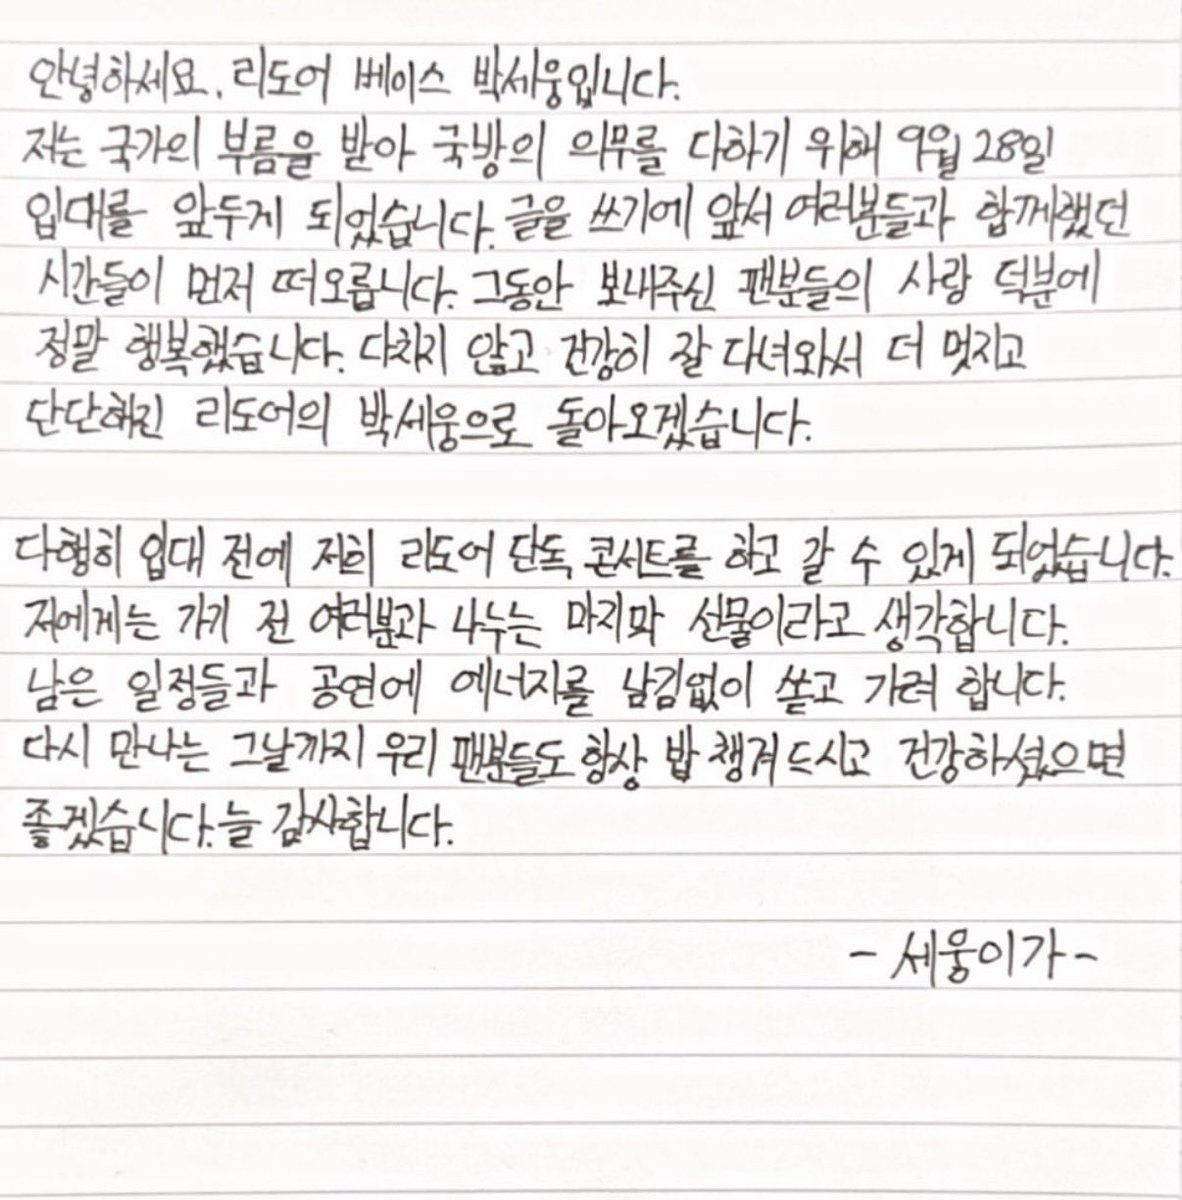 안녕하세요. 리도어 베이스 박세웅입니다.
저는 국가의 부름을 받아 국방의 의무를 다하기 위해 9월 28일
입대를 앞두게 되었습니다. 글을 쓰기에 앞서 여러분들과 함께했던
시간들이 먼저 떠오릅니다. 그동안 보내주신 팬분들의 사랑 덕분에
정말 행복했습니다. 다치지 않고 건강히 잘 다녀와서 더 멋지고
단단해진 리도어의 박세웅으로 돌아오겠습니다.
다행히 입대 전에 저희 리도어 단독 콘서트를 하고 갈 수 있게 되었습니다.
저에게는 가기 전 여러분과 나누는 마지막 선물이라고 생각합니다.
남은 일정들과 공연에 에너지를 남김없이 쏟고 가려 합니다.
다시 만나는 그날까지 우리 팬분들도 항상 밥 챙겨드시고 건강하셨으면
좋겠습니다. 늘 감사합니다.
- 세웅이가 -